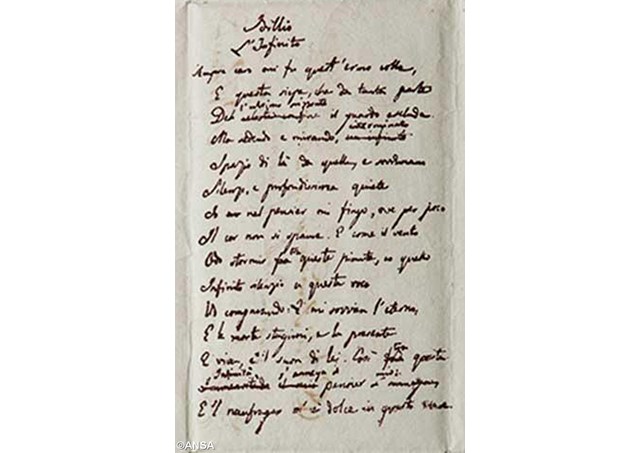 Idillio
L'Infinito
Sempre caro mi fu quest'ermo colle,
E questa siepe, che da tanta parte
Del celeste confine l'ultimo orizzonte il guardo esclude.
Ma sedendo e mirando, interminato
Spazio di là da quella, e sovrumani
Silenzi, e profondissima quiete
Io nel pensier mi fingo, ove per poco
Il cor non si spaura. E come il vento
Odo stormir tra queste piante, io quello
Infinito silenzio a questa voce
Vo comparando: E mi sovvien l'eterno,
E le morte stagioni, e la presente
E viva, e 'l suon di lei. Così tra questa
Infinità s'annega il pensier mio:
E 'l naufragar m'è dolce in questo mare.
©ANSA